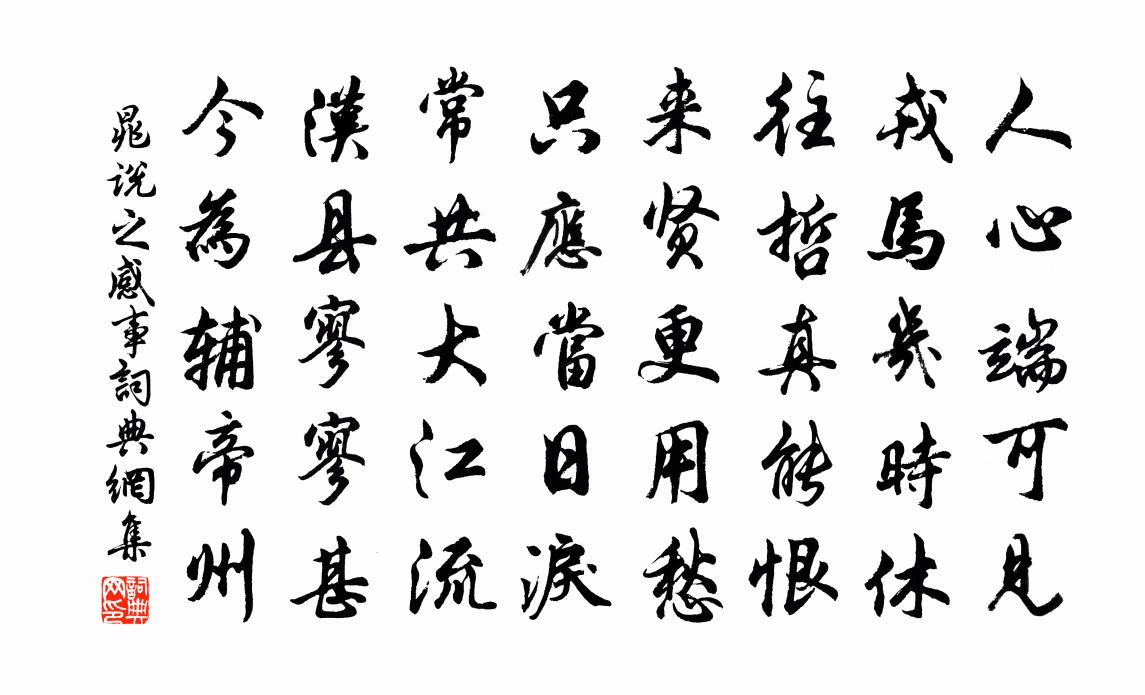 人心端可見
戎馬幾時休
往哲真能恨
来贤更用愁
只應當日淚
常共大江流
漢县寥寥甚
今為辅帝州
晁说之感事詞典網集
詞典網印